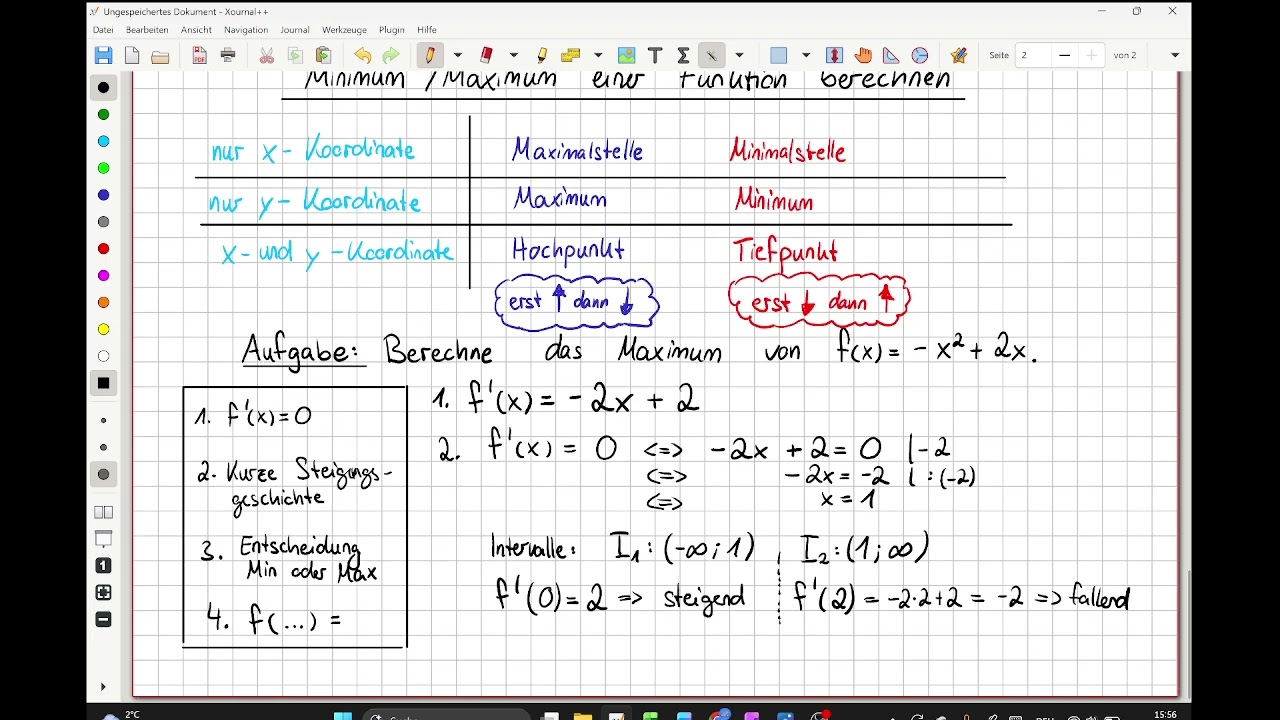 Ungespeichertes Dokument - Xournal++
Datei Bearbeiten Ansicht Navigation Journal Werkzeuge Plugin Hilfe
Seite 2 von 2
Minimum / Maximum einer Funktion berechnen
nur x - Koordinate Maximalstelle Minimalstelle
nur y - Koordinate Maximum Minimum
x - und y - Koordinate Hochpunkt Tiefpunkt
erst ↑ dann ↓ erst ↓ dann ↑
Aufgabe: Berechne das Maximum von f(x) = - x² + 2x.
1. f'(x) = 0
2. Kurze Steigungs-
geschichte
3. Entscheidung
Min oder Max
4. f(...) =
1. f'(x) = - 2x + 2
2. f'(x) = 0 <=> - 2x + 2 = 0 | - 2
<=> - 2x = -2 | : (-2)
<=> x = 1
Intervalle: I₁ : (-∞ ; 1) I₂ : (1 ; ∞)
f'(0) = 2 => steigend f'(2) = -2·2+2 = -2 => fallend
1
2°C
Suche
15:56